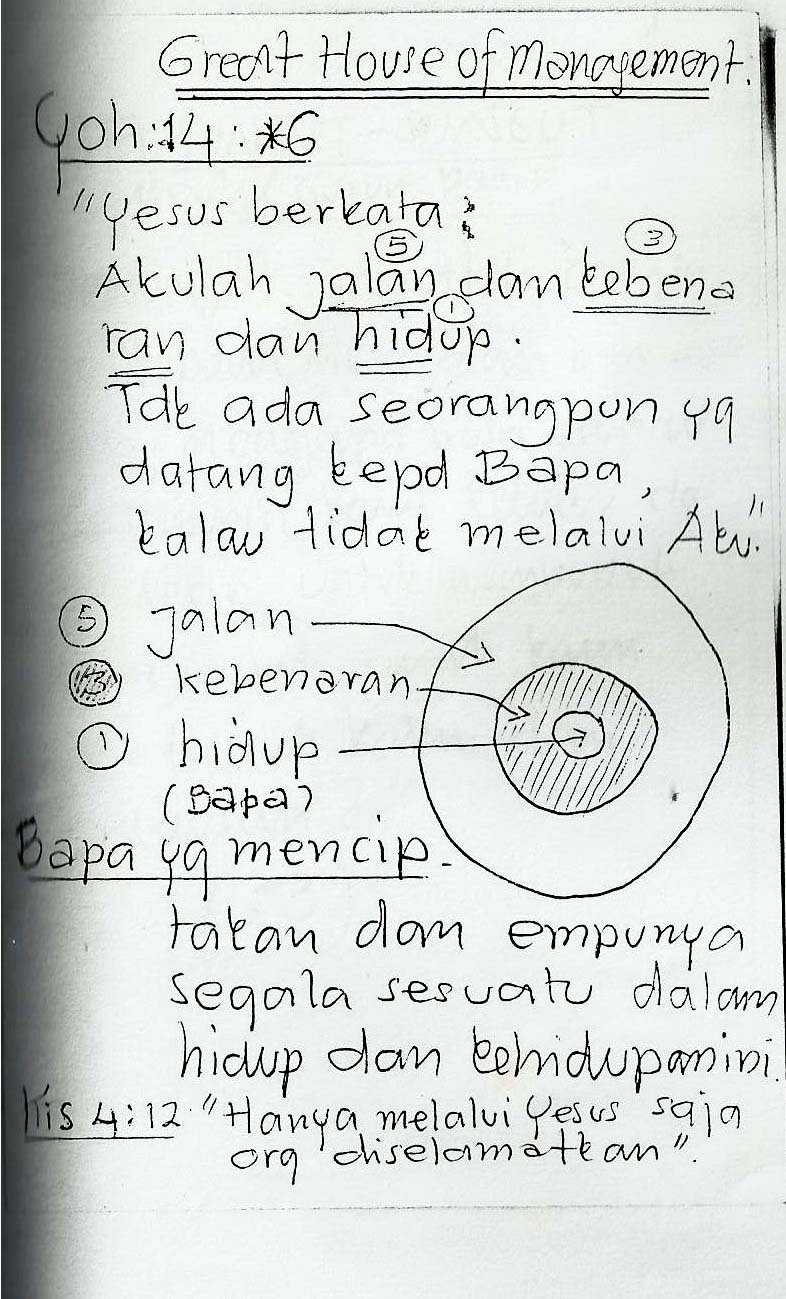 Great House of Management.
Yoh:14:*6
"Yesus berkata:
⑤ ③
Akulah jalan dan kebena
①
ran dan hidup.
Tdk ada seorangpun yg
datang kepd Bapa,
kalau tidak melalui Aku."
⑤ jalan
③ kebenaran
① hidup
(Bapa)
Bapa yg mencip-
takan dan empunya
segala sesuatu dalam
hidup dan kehidupan ini.
Kis 4:12 "Hanya melalui Yesus saja
org diselamatkan".